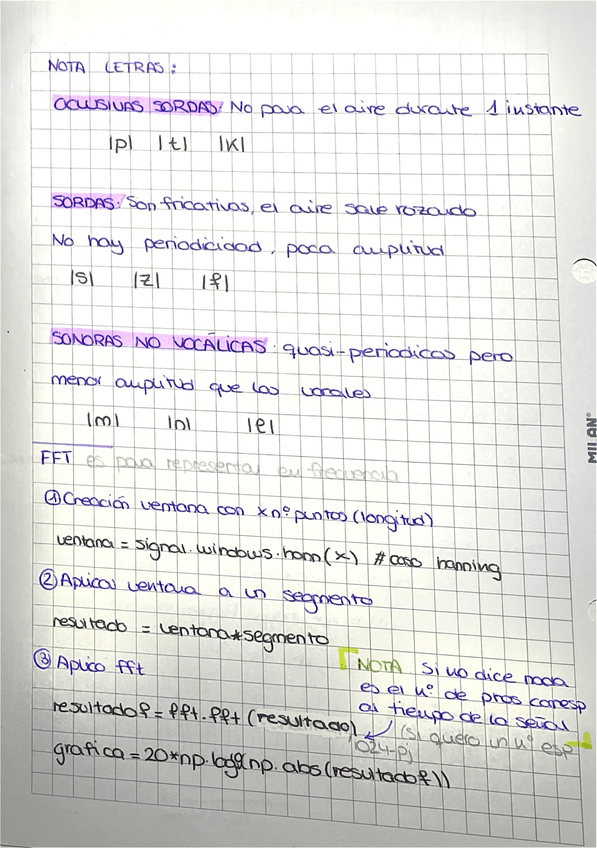 NOTA LETRAS:
OCLUSIVAS SORDAS: No pasa el aire durante 1 instante
|p| |t| |k|
SORDAS: Son fricativas, el aire sale rozando
No hay periodicidad, poca amplitud
|s| |z| |f|
SONORAS NO VOCÁLICAS: quasi-periodicas pero
menor amplitud que las vocales
|m| |n| |l|
MILAN
FFT es para representar en frecuencia
① Creación ventana con x nº puntos (longitud)
ventana = signal.windows.hann(x) # caso hanning
② Aplicar ventana a un segmento
resultado = ventana*segmento
③ Aplico fft
NOTA Si no dice nada
es el nº de ptos corresp
al tiempo de la señal
resultadof = fft.fft(resultado)
(si quiero un nº esp
1024-pj
grafica = 20*np.log(np.abs(resultadof))